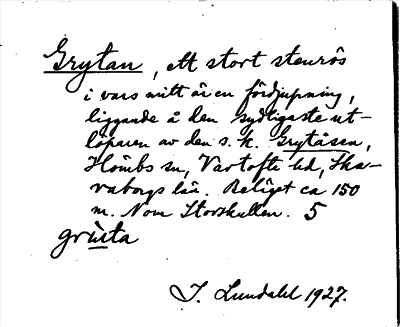 Grytan, ett stort stenrös
i vars mitt är en fördjupning,
liggande å den sydligaste ut-
löparen av den s. k. Grytåsen,
Hömbs sn, Vartofta hd, Ska-
raborgs län. Beläget ca 150
m. Nom Storskullen. 5
grùta
J. Lundahl 1927.